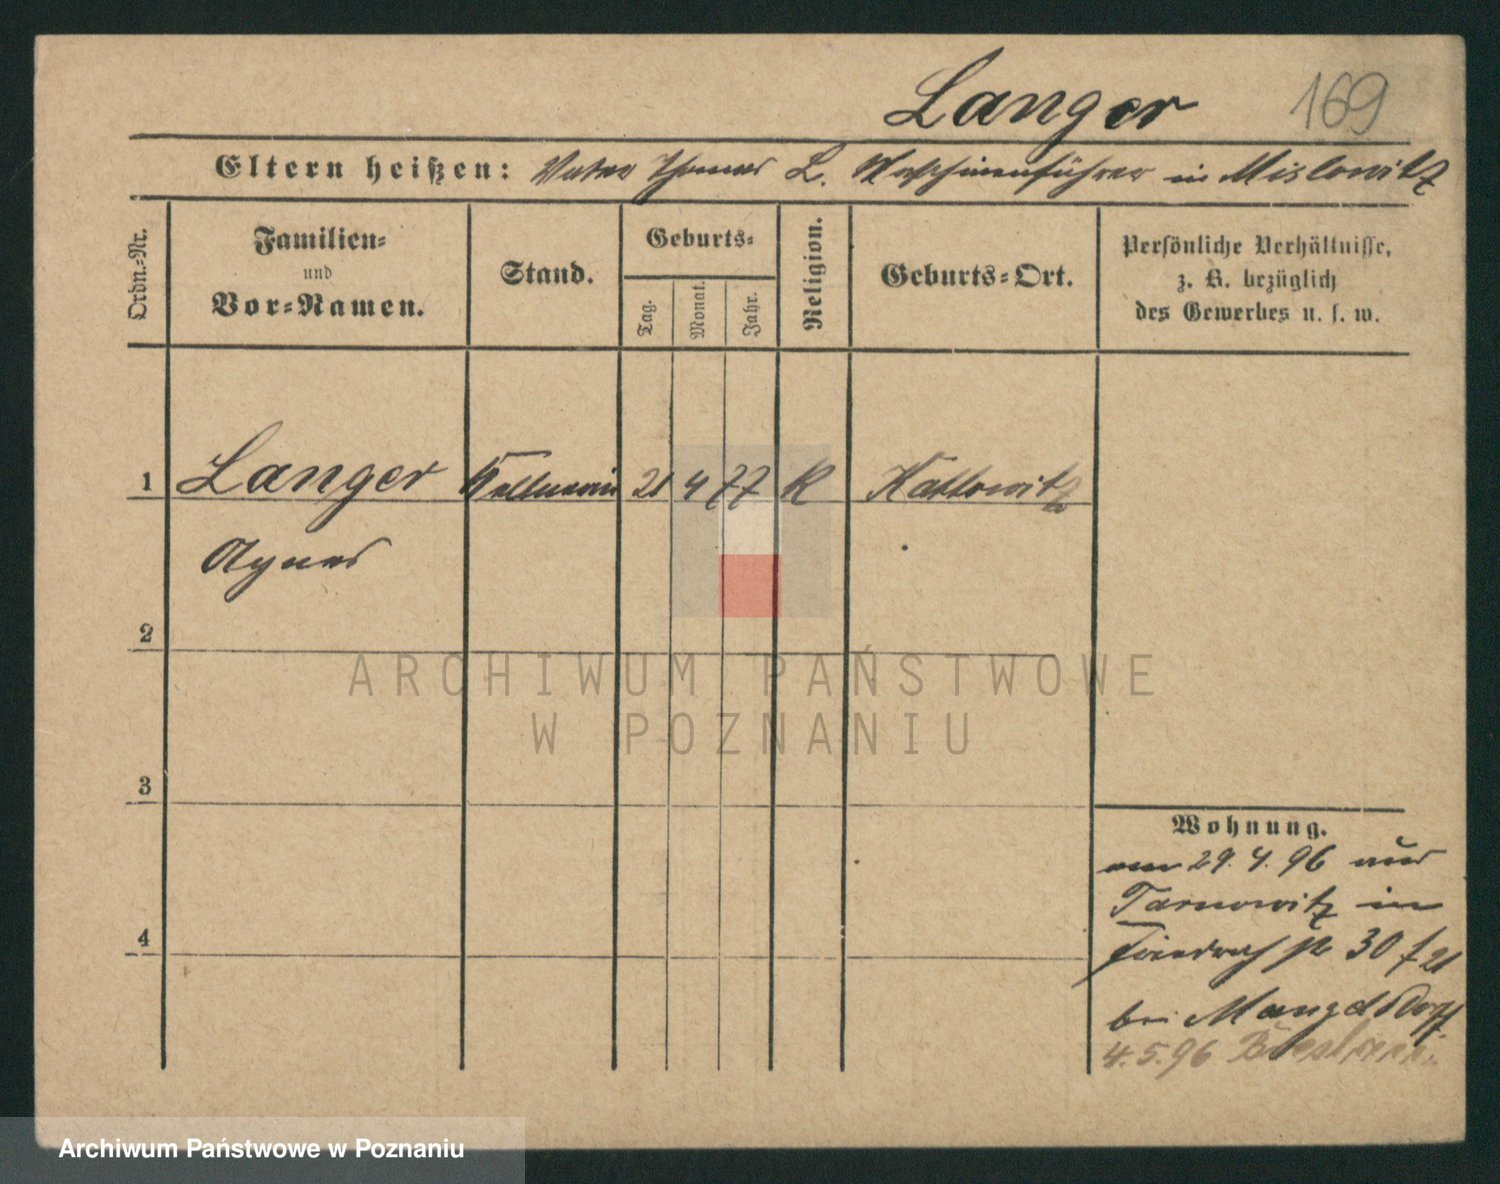 Langer 169
Eltern heißen: Vater Thomas L. Maschinenführer in Mislowitz
Ordn.-Nr.
Familien-
und
Vor-Namen.
Stand.
Geburts-
Tag.
Monat.
Jahr.
Religion.
Geburts-Ort.
Persönliche Verhältnisse,
z. B. bezüglich
des Gewerbes u. s. w.
1 Langer Kellnerin 21 4 77 K Kattowitz
Agnes
2
ARCHIWUM PAŃSTWOWE
W POZNANIU
3
4
Wohnung.
am 29.4.96 aus
Tarnowitz in
Friedrich str 30
bei Mangelsdorff
4.5.96
Archiwum Państwowe w Poznaniu